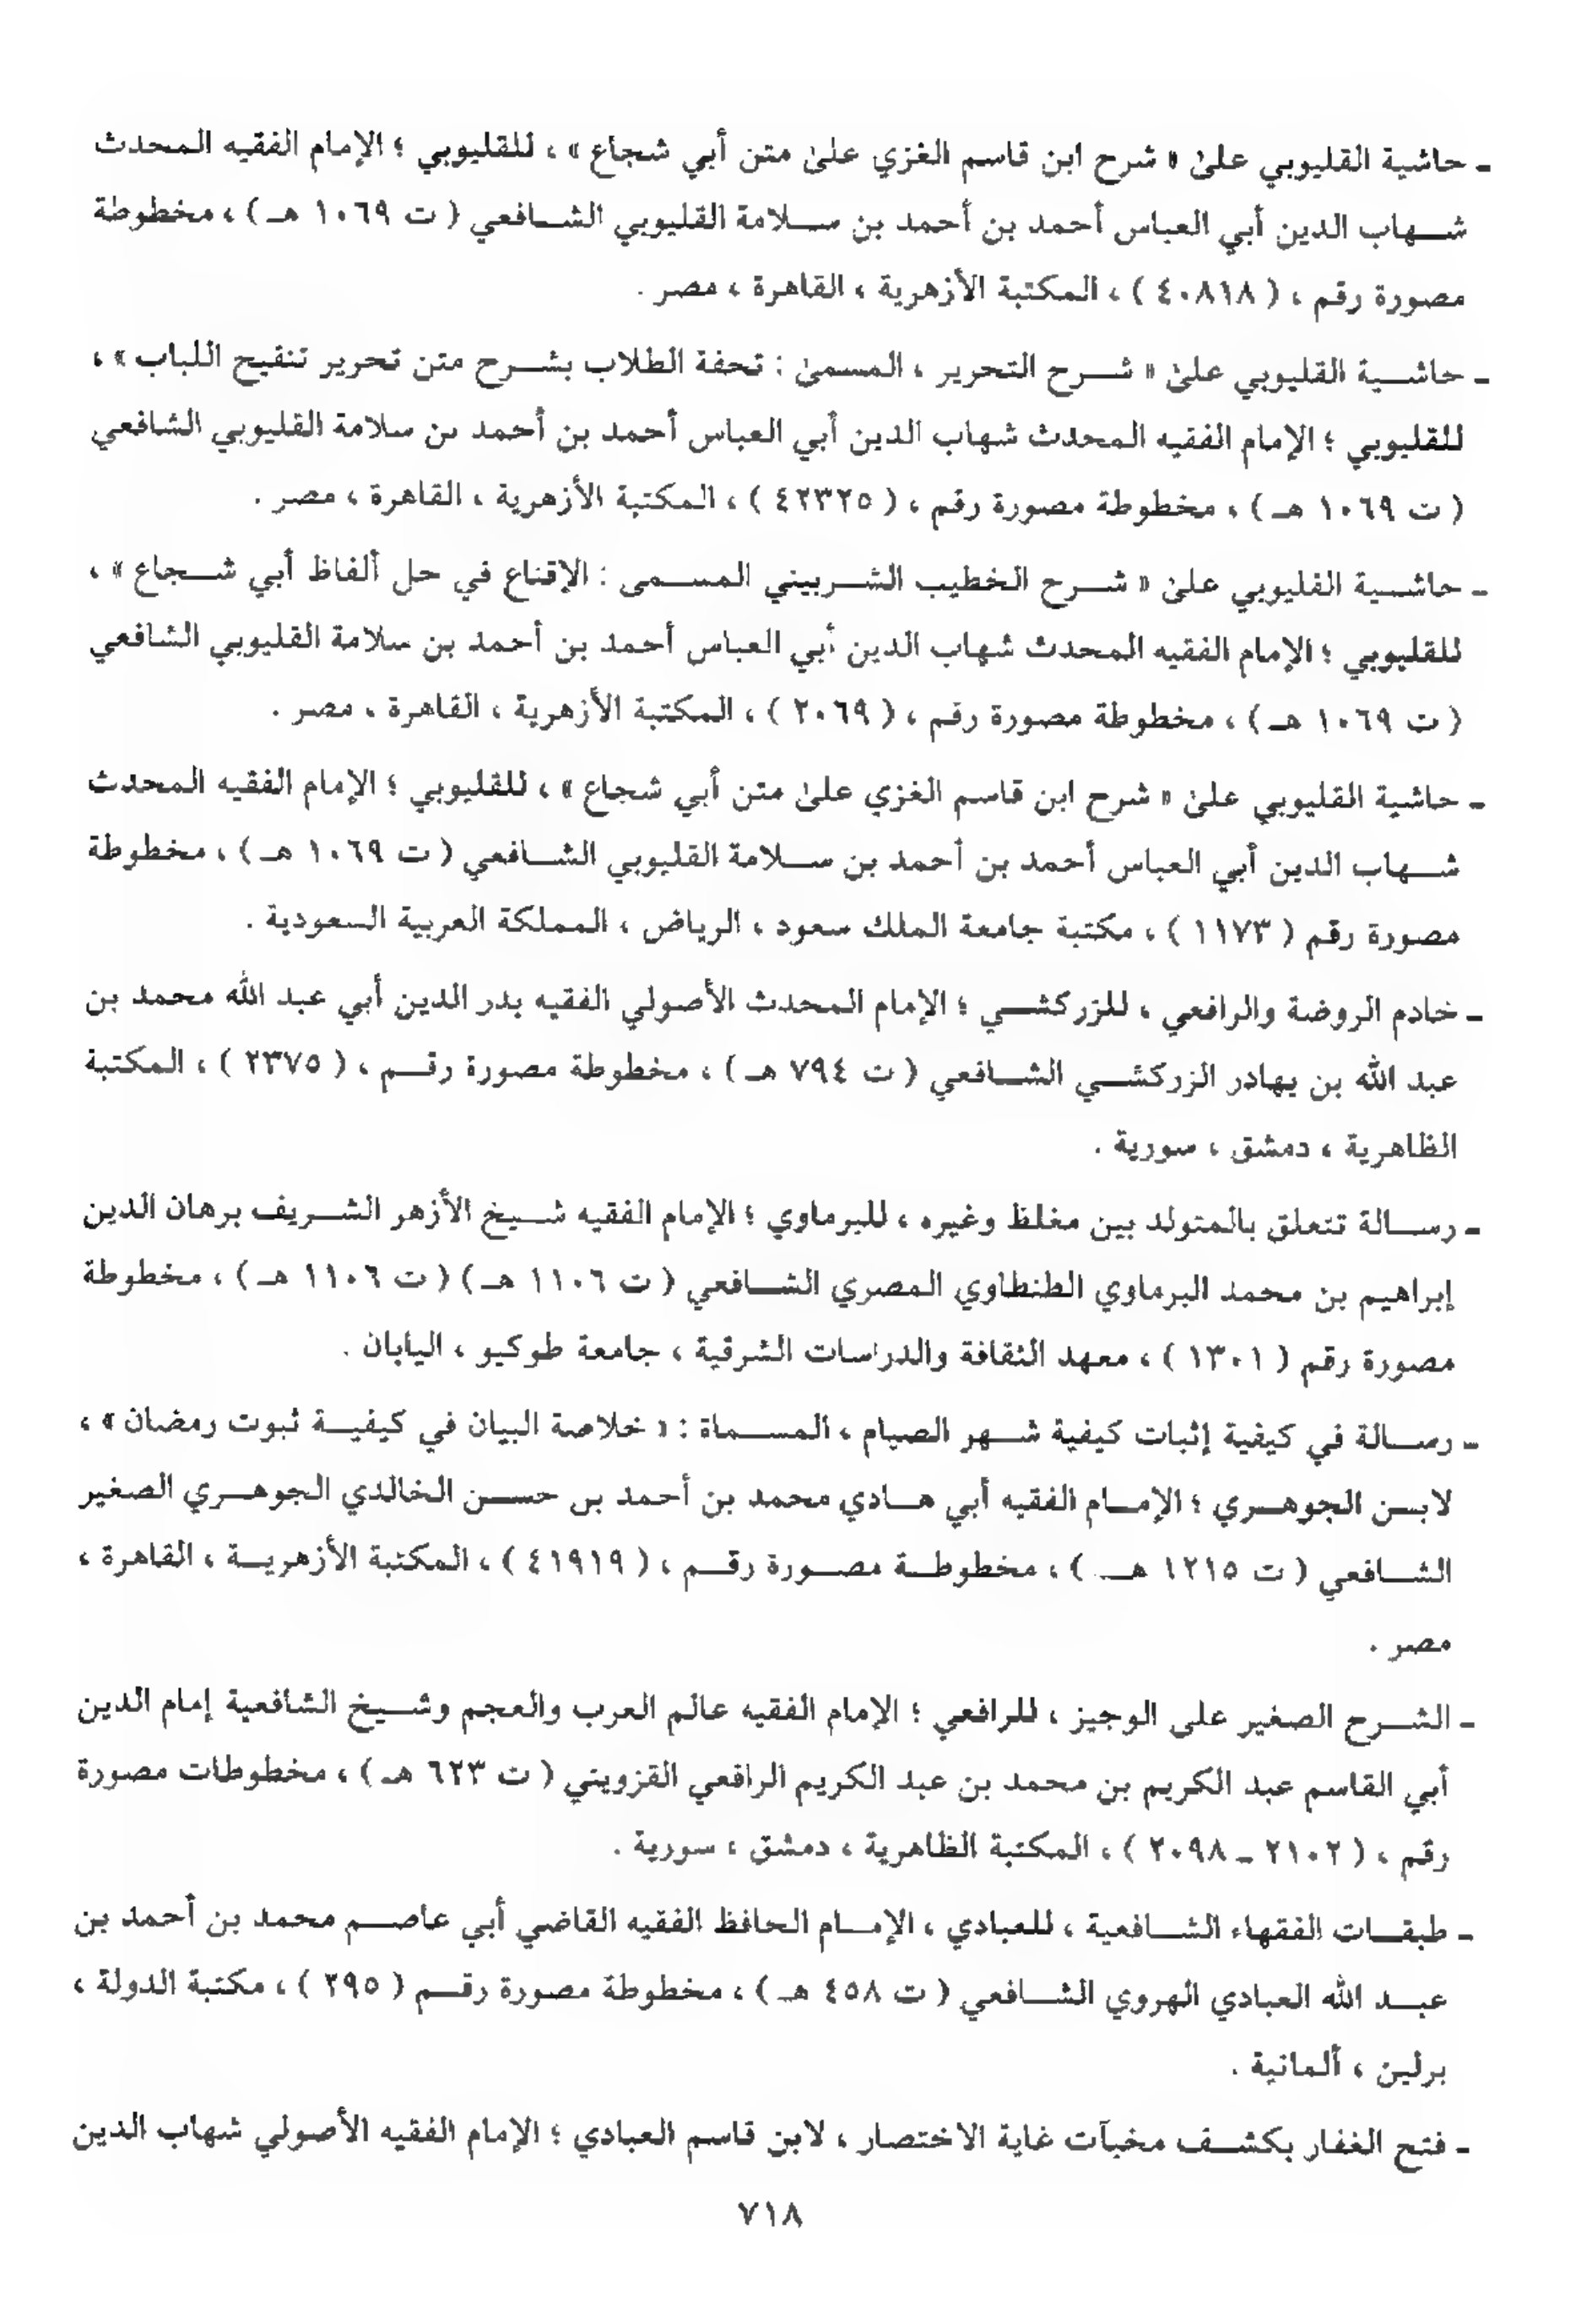 - حاشية القليوبي علىٰ « شرح ابن قاسم الغزي علىٰ متن أبي شجاع » ، للقليوبي ؛ الإمام الفقيه المحدث
شهاب الدين أبي العباس أحمد بن أحمد بن سلامة القليوبي الشافعي ( ت ١٠٦٩ هـ ) ، مخطوطة
مصورة رقم ، ( ٤٠٨١٨ ) ، المكتبة الأزهرية ، القاهرة ، مصر .
- حاشية القليوبي علىٰ « شرح التحرير ، المسمىٰ : تحفة الطلاب بشرح متن تحرير تنقيح اللباب » ،
للقليوبي ؛ الإمام الفقيه المحدث شهاب الدين أبي العباس أحمد بن أحمد بن سلامة القليوبي الشافعي
( ت ١٠٦٩ هـ ) ، مخطوطة مصورة رقم ، ( ٤٢٣٢٥ ) ، المكتبة الأزهرية ، القاهرة ، مصر .
- حاشية القليوبي علىٰ « شرح الخطيب الشربيني المسمى : الإقناع في حل ألفاظ أبي شجاع » ،
للقليوبي ؛ الإمام الفقيه المحدث شهاب الدين أبي العباس أحمد بن أحمد بن سلامة القليوبي الشافعي
( ت ١٠٦٩ هـ ) ، مخطوطة مصورة رقم ، ( ٢٠٦٩ ) ، المكتبة الأزهرية ، القاهرة ، مصر .
- حاشية القليوبي علىٰ « شرح ابن قاسم الغزي علىٰ متن أبي شجاع » ، للقليوبي ؛ الإمام الفقيه المحدث
شهاب الدين أبي العباس أحمد بن أحمد بن سلامة القليوبي الشافعي ( ت ١٠٦٩ هـ ) ، مخطوطة
مصورة رقم ( ١١٧٣ ) ، مكتبة جامعة الملك سعود ، الرياض ، المملكة العربية السعودية .
- خادم الروضة والرافعي ، للزركشي ؛ الإمام المحدث الأصولي الفقيه بدر الدين أبي عبد الله محمد بن
عبد الله بن بهادر الزركشي الشافعي ( ت ٧٩٤ هـ ) ، مخطوطة مصورة رقم ، ( ٢٣٧٥ ) ، المكتبة
الظاهرية ، دمشق ، سورية .
- رسالة تتعلق بالمتولد بين مغلظ وغيره ، للبرماوي ؛ الإمام الفقيه شيخ الأزهر الشريف برهان الدين
إبراهيم بن محمد البرماوي الطنطاوي المصري الشافعي ( ت ١١٠٦ هـ ) ( ت ١١٠٦ هـ ) ، مخطوطة
مصورة رقم ( ١٣٠١ ) ، معهد الثقافة والدراسات الشرقية ، جامعة طوكيو ، اليابان .
- رسالة في كيفية إثبات كيفية شهر الصيام ، المسماة : « خلاصة البيان في كيفية ثبوت رمضان » ،
لابن الجوهري ؛ الإمام الفقيه أبي هادي محمد بن أحمد بن حسن الخالدي الجوهري الصغير
الشافعي ( ت ١٢١٥ هـ ) ، مخطوطة مصورة رقم ، ( ٤١٩١٩ ) ، المكتبة الأزهرية ، القاهرة ،
مصر .
- الشرح الصغير على الوجيز ، للرافعي ؛ الإمام الفقيه عالم العرب والعجم وشيخ الشافعية إمام الدين
أبي القاسم عبد الكريم بن محمد بن عبد الكريم الرافعي القزويني ( ت ٦٢٣ هـ ) ، مخطوطات مصورة
رقم ، ( ٢١٠٢ - ٢٠٩٨ ) ، المكتبة الظاهرية ، دمشق ، سورية .
- طبقات الفقهاء الشافعية ، للعبادي ، الإمام الحافظ الفقيه القاضي أبي عاصم محمد بن أحمد بن
عبد الله العبادي الهروي الشافعي ( ت ٤٥٨ هـ ) ، مخطوطة مصورة رقم ( ٢٩٥ ) ، مكتبة الدولة ،
برلين ، ألمانية .
- فتح الغفار بكشف مخبآت غاية الاختصار ، لابن قاسم العبادي ؛ الإمام الفقيه الأصولي شهاب الدين
٧١٨